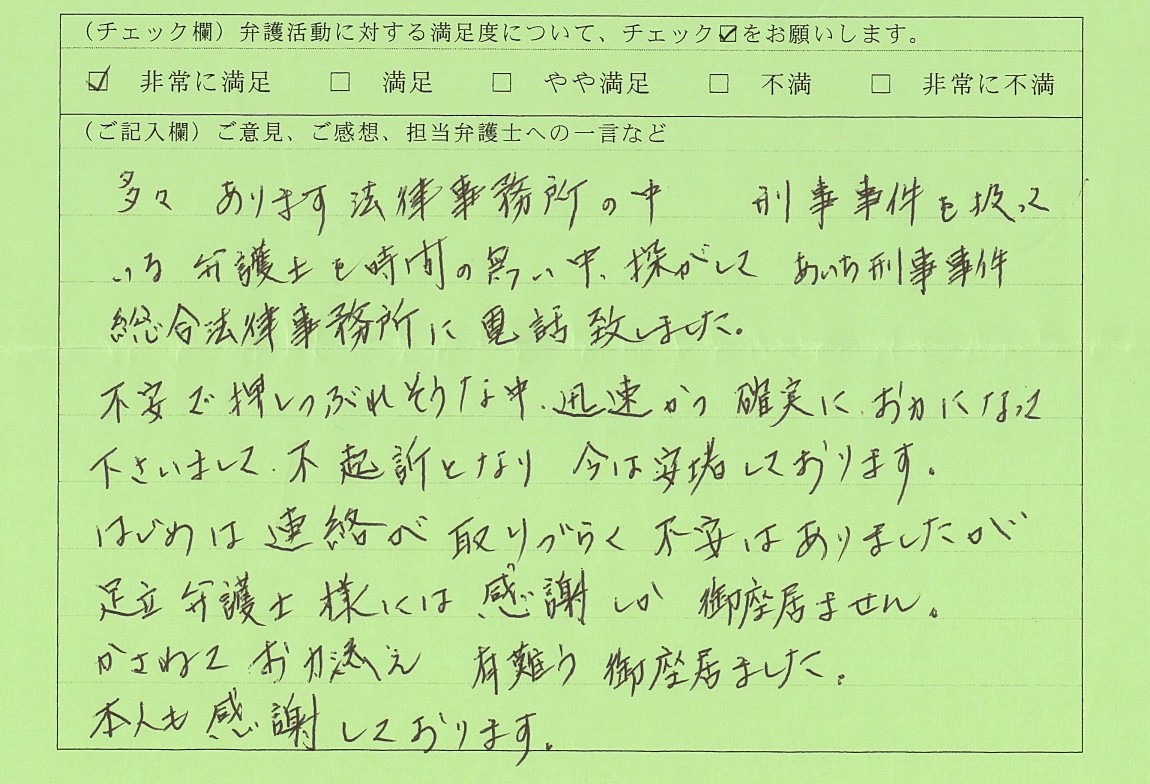 （チェック欄）弁護活動に対する満足度について、チェック☑をお願いします。
☑ 非常に満足 □ 満足 □ やや満足 □ 不満 □ 非常に不満
（ご記入欄）ご意見、ご感想、担当弁護士への一言など
多々 あります法律事務所の中 刑事事件を扱って
いる 弁護士を時間の無い中、探がして あいち刑事事件
総合法律事務所に電話致しました。
不安で押しつぶれそうな中、迅速かつ確実に、お力になって
下さいまして、不起訴となり 今は安堵しております。
はじめは連絡が取りづらく不安はありましたが
足立弁護士様には感謝しか御座居ません。
かさねて お力添え 有難う御座居ました。
本人も感謝しております。